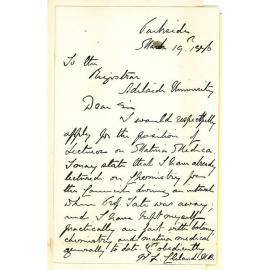 Parkside
March 19th 1886
To the
Registrar
Adelaide University
Dear Sir
I would respectfully
apply for the position of
Lecturer on Materia Medica.
I may state that I have already
lectured on Chemistry for
the University during an interval
when Prof Tate was away;
and I have kept myself
practically au fait with botany
chemistry and materia medica
generally to date. Yr obedient
W. L. Cleland M.B.